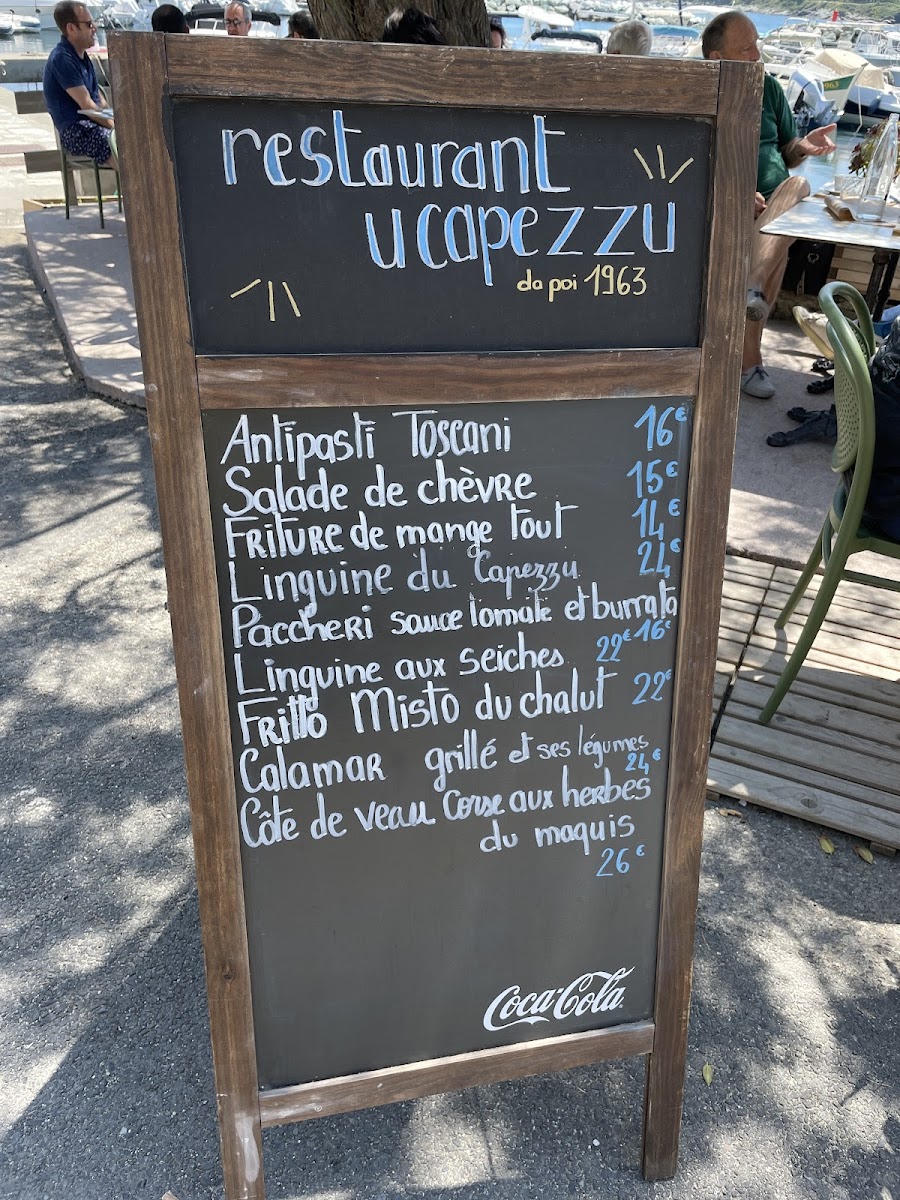 restaurant
u capezzu
da poi 1963
Antipasti Toscani 16€
Salade de chèvre 15€
Friture de mange tout 14€
Linguine du Capezzu 24€
Paccheri sauce tomate et burrata
16€
Linguine aux seiches 22€
Fritto Misto du chalut 22€
Calamar grillé et ses légumes
24€
Côte de veau Corse aux herbes
du maquis
26€
Coca-Cola
963